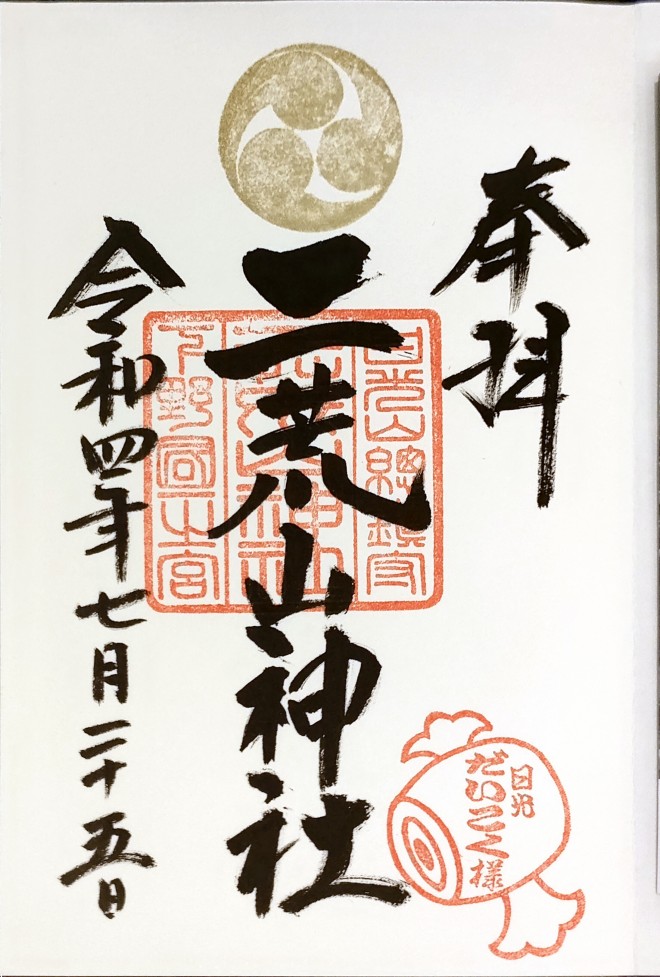 奉拝
日光山總鎮守
二荒山神社
二荒山神社
下野國一之宮
令和四年七月二十五日
日光
だいこく様